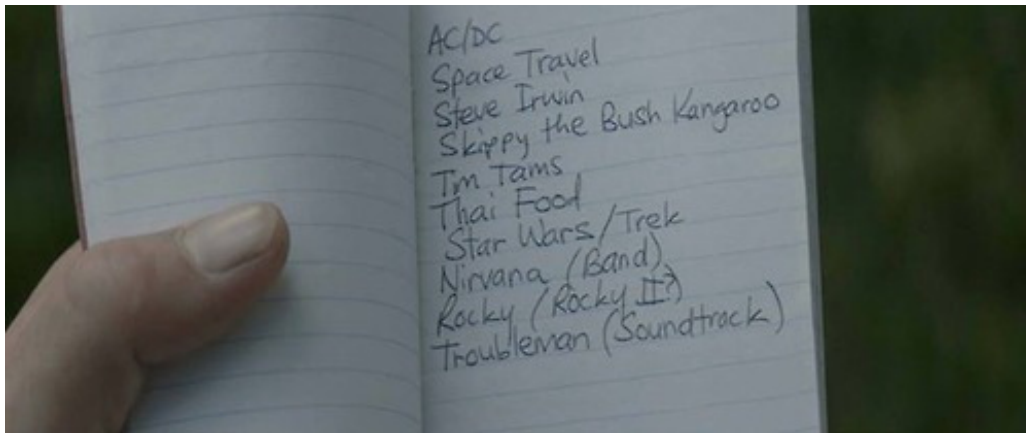 AC/DC
Space Travel
Steve Irwin
Skippy the Bush Kangaroo
Tm Tams
Thai Food
Star Wars/Trek
Nirvana (Band)
Rocky (Rocky II?)
Troubleman (Soundtrack)